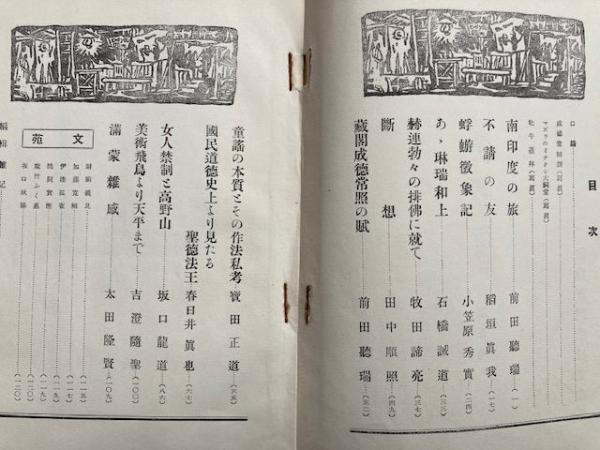 目次
口繪
南印度の旅 前田聽瑞 (一)
不請の友 稻垣眞我 (一七)
蜉蝣徴象記 小笠原秀實 (二四)
あゝ琳瑞和上 石橋誡道 (三三)
赫連勃々の排佛に就て 牧田諦亮 (三七)
斷想 田中順照 (四九)
藏閣成德常照の賦 前田聽瑞 (五二)
童謠の本質とその作法私考 寶田正道 (五五)
國民道德史上より見たる
聖德法王 春日井眞也 (六七)
女人禁制と高野山 坂口龍道 (八六)
美術飛鳥より天平まで 吉澄隨聖 (一〇〇)
滿蒙雜感 太田隆賢 (一〇九)
文苑
編輯雜記 (一二〇)